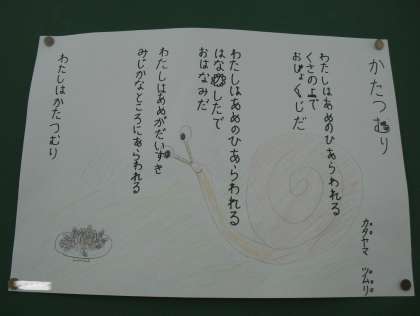 かたつむり
カタヤマ ヅムリ
わたしはあめのひあらわれる
くさの上で
おじょくじだ
わたしはあめのひあらわれる
はなのしたで
おはなみだ
わたしはあめがだいすき
みじかなところにあらわれる
わたしはかたつむり